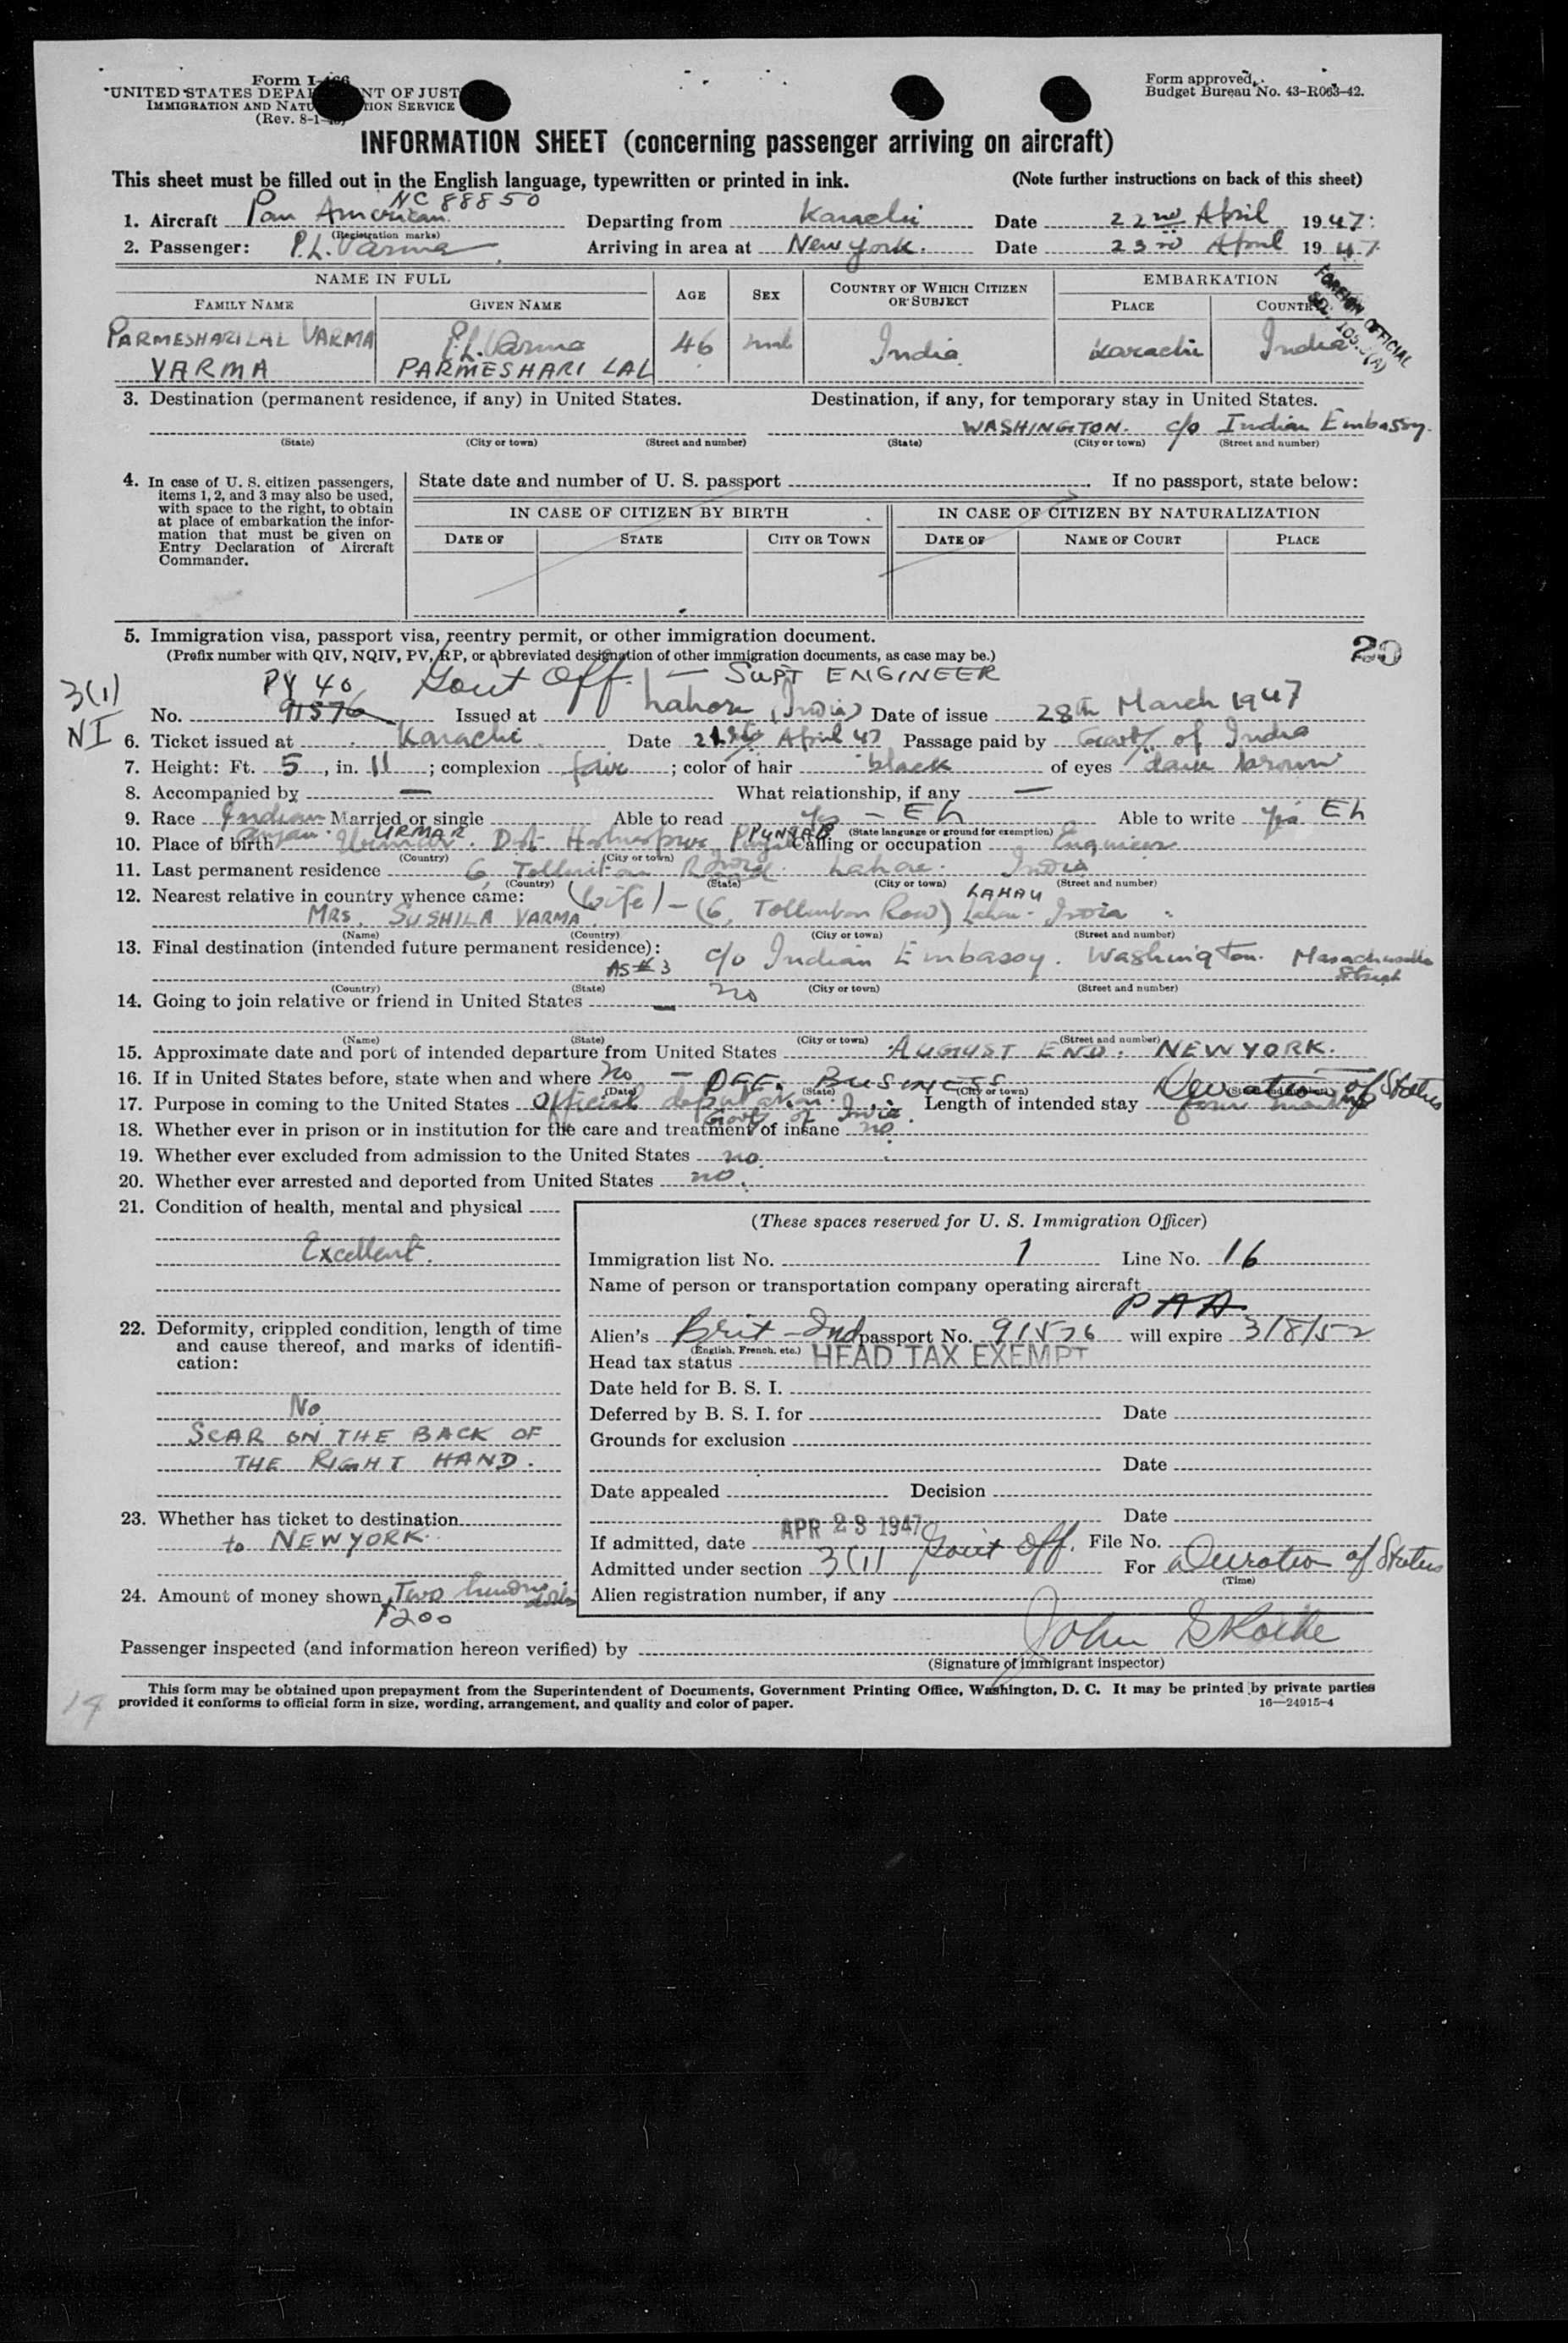 Form I-466
UNITED STATES DEPARTMENT OF JUSTICE
IMMIGRATION AND NATURALIZATION SERVICE
(Rev. 8-1-
Form approved.
Budget Bureau No. 43-R063-42.
INFORMATION SHEET (concerning passenger arriving on aircraft)
This sheet must be filled out in the English language, typewritten or printed in ink. (Note further instructions on back of this sheet)
NC 88850
1. Aircraft Pan American Departing from Karachi Date 22nd April 1947.
(Registration marks)
2. Passenger: P.L. Varma Arriving in area at New York. Date 23rd April 1947
NAME IN FULL AGE SEX COUNTRY OF WHICH CITIZEN OR SUBJECT EMBARKATION
FAMILY NAME GIVEN NAME PLACE COUNTRY
FOREIGN OFFICIAL
PARMESHARILAL VARMA P.L. Varma 46 India Karachi India
VARMA PARMESHARI LAL
3. Destination (permanent residence, if any) in United States. Destination, if any, for temporary stay in United States.
WASHINGTON. c/o Indian Embassy.
(State) (City or town) (Street and number) (State) (City or town) (Street and number)
4. In case of U. S. citizen passengers, items 1, 2, and 3 may also be used, with space to the right, to obtain at place of embarkation the information that must be given on Entry Declaration of Aircraft Commander.
State date and number of U. S. passport If no passport, state below:
IN CASE OF CITIZEN BY BIRTH IN CASE OF CITIZEN BY NATURALIZATION
DATE OF STATE CITY OR TOWN DATE OF NAME OF COURT PLACE
5. Immigration visa, passport visa, reentry permit, or other immigration document.
(Prefix number with QIV, NQIV, PV, RP, or abbreviated designation of other immigration documents, as case may be.)
20
3(1)
NI
PV 40 Govt Off. — SUPT ENGINEER
No. 91576 Issued at Lahore (India) Date of issue 28th March 1947
6. Ticket issued at Karachi Date 21st April 47 Passage paid by Govt of India
7. Height: Ft. 5, in. 11; complexion fair; color of hair black of eyes dark brown
8. Accompanied by — What relationship, if any —
9. Race Indian Married or single Able to read Yes - Eh Able to write Yes Eh
Aryan. URMAR PUNJAB (State language or ground for exemption)
10. Place of birth Urmar. Dt. Calling or occupation Engineer
(Country) (City or town)
11. Last permanent residence 6, Tollinton Road Lahore. India
(Country) (State) (City or town) (Street and number)
12. Nearest relative in country whence came: (Wife) - (6, Tollinton Row) India
MRS. SUSHILA VARMA
(Name) (Country) (City or town) (Street and number)
13. Final destination (intended future permanent residence): c/o Indian Embassy. Washington.
AS #3
(Country) (State) (City or town) (Street and number)
14. Going to join relative or friend in United States — no
(Name) (State) (City or town) (Street and number)
15. Approximate date and port of intended departure from United States AUGUST END. NEW YORK.
16. If in United States before, state when and where no - OFF. BUSINESS
(Date) (State) (City or town) (Street and number)
Duration of Status
17. Purpose in coming to the United States Official deputation Govt of India. Length of intended stay four months
18. Whether ever in prison or in institution for the care and treatment of insane no
19. Whether ever excluded from admission to the United States no.
20. Whether ever arrested and deported from United States no.
21. Condition of health, mental and physical
Excellent.
22. Deformity, crippled condition, length of time and cause thereof, and marks of identification:
No
SCAR ON THE BACK OF
THE RIGHT HAND.
23. Whether has ticket to destination
to NEW YORK.
24. Amount of money shown Two hundred
$200
(These spaces reserved for U. S. Immigration Officer)
Immigration list No. 1 Line No. 16
Name of person or transportation company operating aircraft
PAA
Alien's Brit-Ind passport No. 91576 will expire 3/8/52
(English, French, etc.)
Head tax status HEAD TAX EXEMPT
Date held for B. S. I.
Deferred by B. S. I. for Date
Grounds for exclusion
Date
Date appealed Decision
Date
If admitted, date APR 23 1947 File No.
Admitted under section 3(1) Govt Off. For Duration of Status
(Time)
Alien registration number, if any
Passenger inspected (and information hereon verified) by John
(Signature of immigrant inspector)
This form may be obtained upon prepayment from the Superintendent of Documents, Government Printing Office, Washington, D. C. It may be printed by private parties
provided it conforms to official form in size, wording, arrangement, and quality and color of paper. 16—24915-4
19